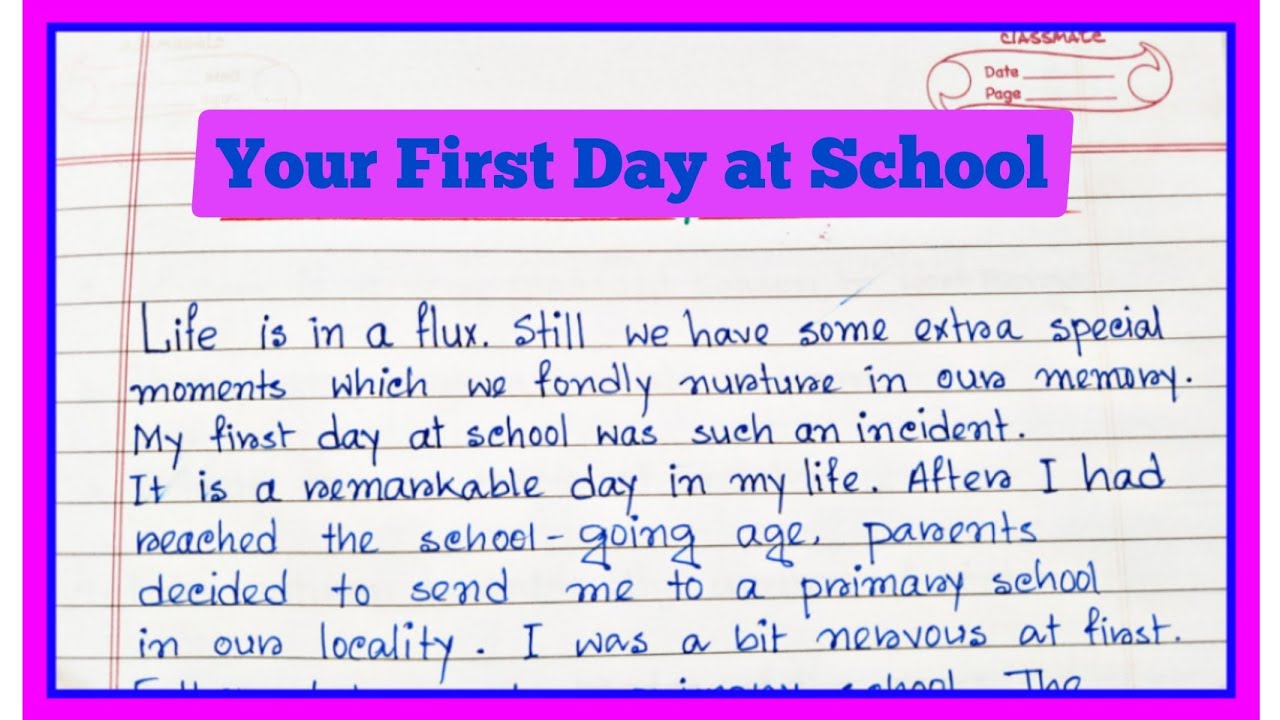 CLASSMATE
Date
Page
Your First Day at School
Life is in a flux. Still we have some extra special
moments which we fondly nurture in our memory.
My first day at school was such an incident.
It is a remarkable day in my life. After I had
reached the school-going age, parents
decided to send me to a primary school
in our locality. I was a bit nervous at first.
school. The